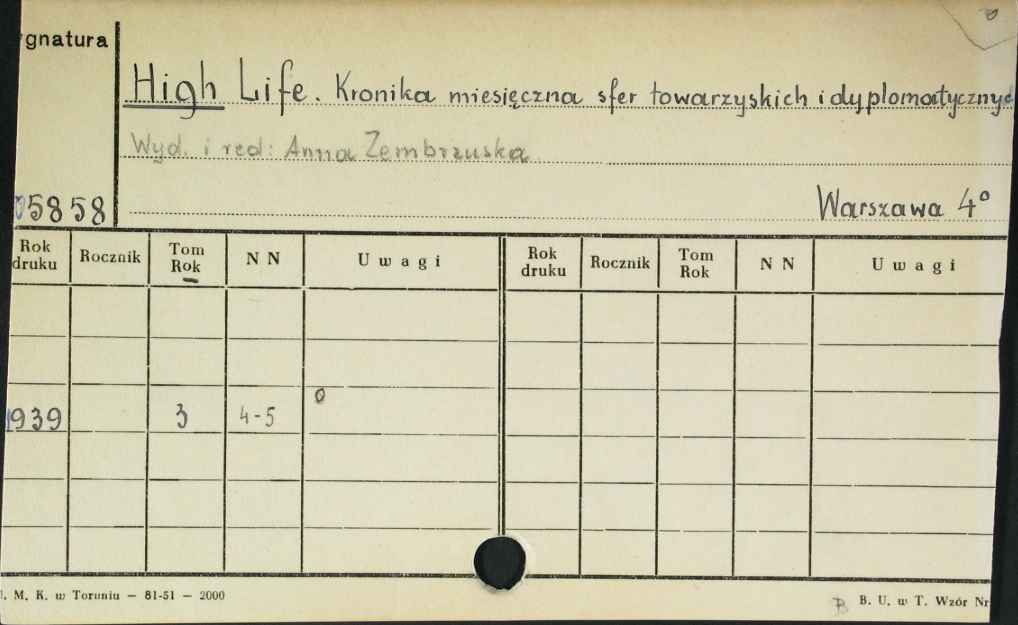 ygnatura
High Life. Kronika miesięczna sfer towarzyskich i dyplomatycznyc
Wyd. i red: Anna Zembrzuska
05858
Warszawa 4°
Rok druku Rocznik Tom Rok N N U w a g i Rok druku Rocznik Tom Rok N N U w a g i
o
1939 3 4-5
. M. K. w Toruniu — 81-51 — 2000
B. U. w T. Wzór Nr